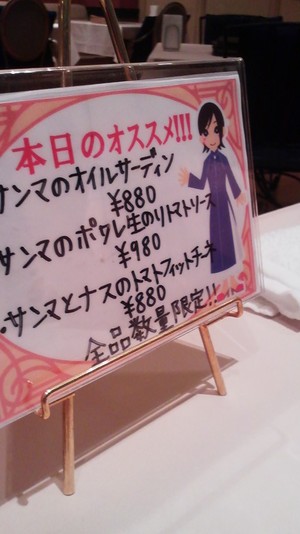 本日のオススメ!!!
サンマのオイルサーディン
¥880
サンマのポワレ生のりトマトソース
¥980
・サンマとナスのトマトフィットチーネ
¥880
全品数量限定!!